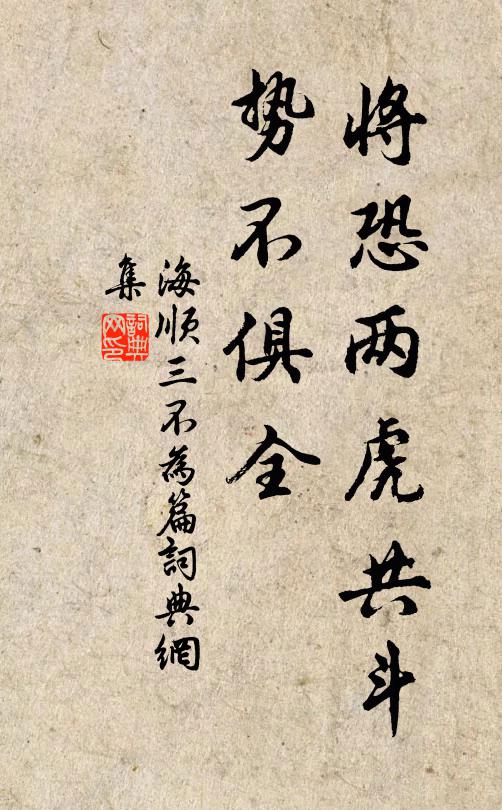 将恐两虎共斗
势不俱全
海顺三不为篇詞典網
集
詞典
网印